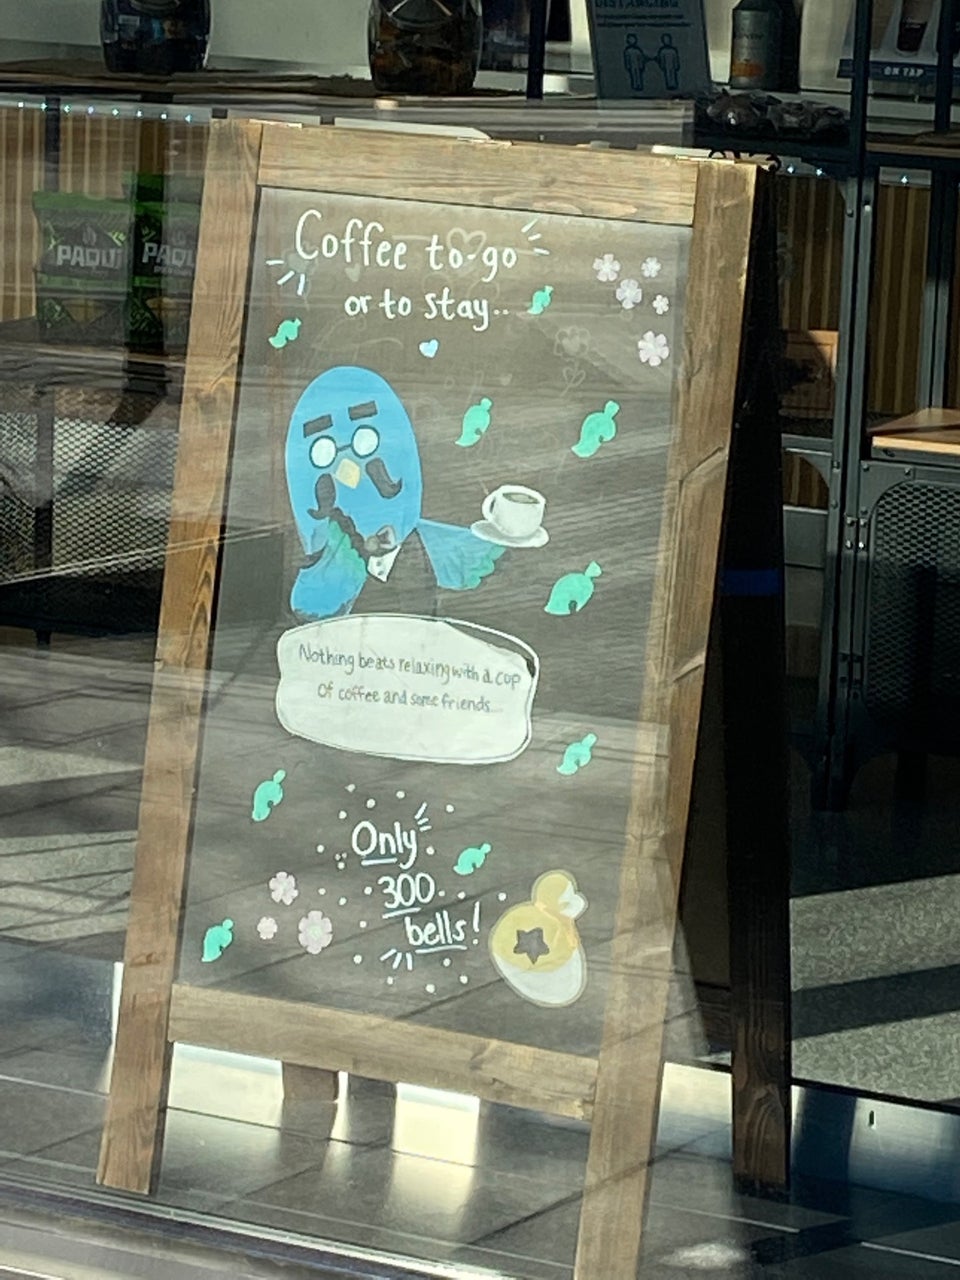 DISTANCING
ON TAP
PAQUI
PAQUI
Coffee to-go
or to stay..
Nothing beats relaxing with a cup
of coffee and some friends...
Only
300
bells!